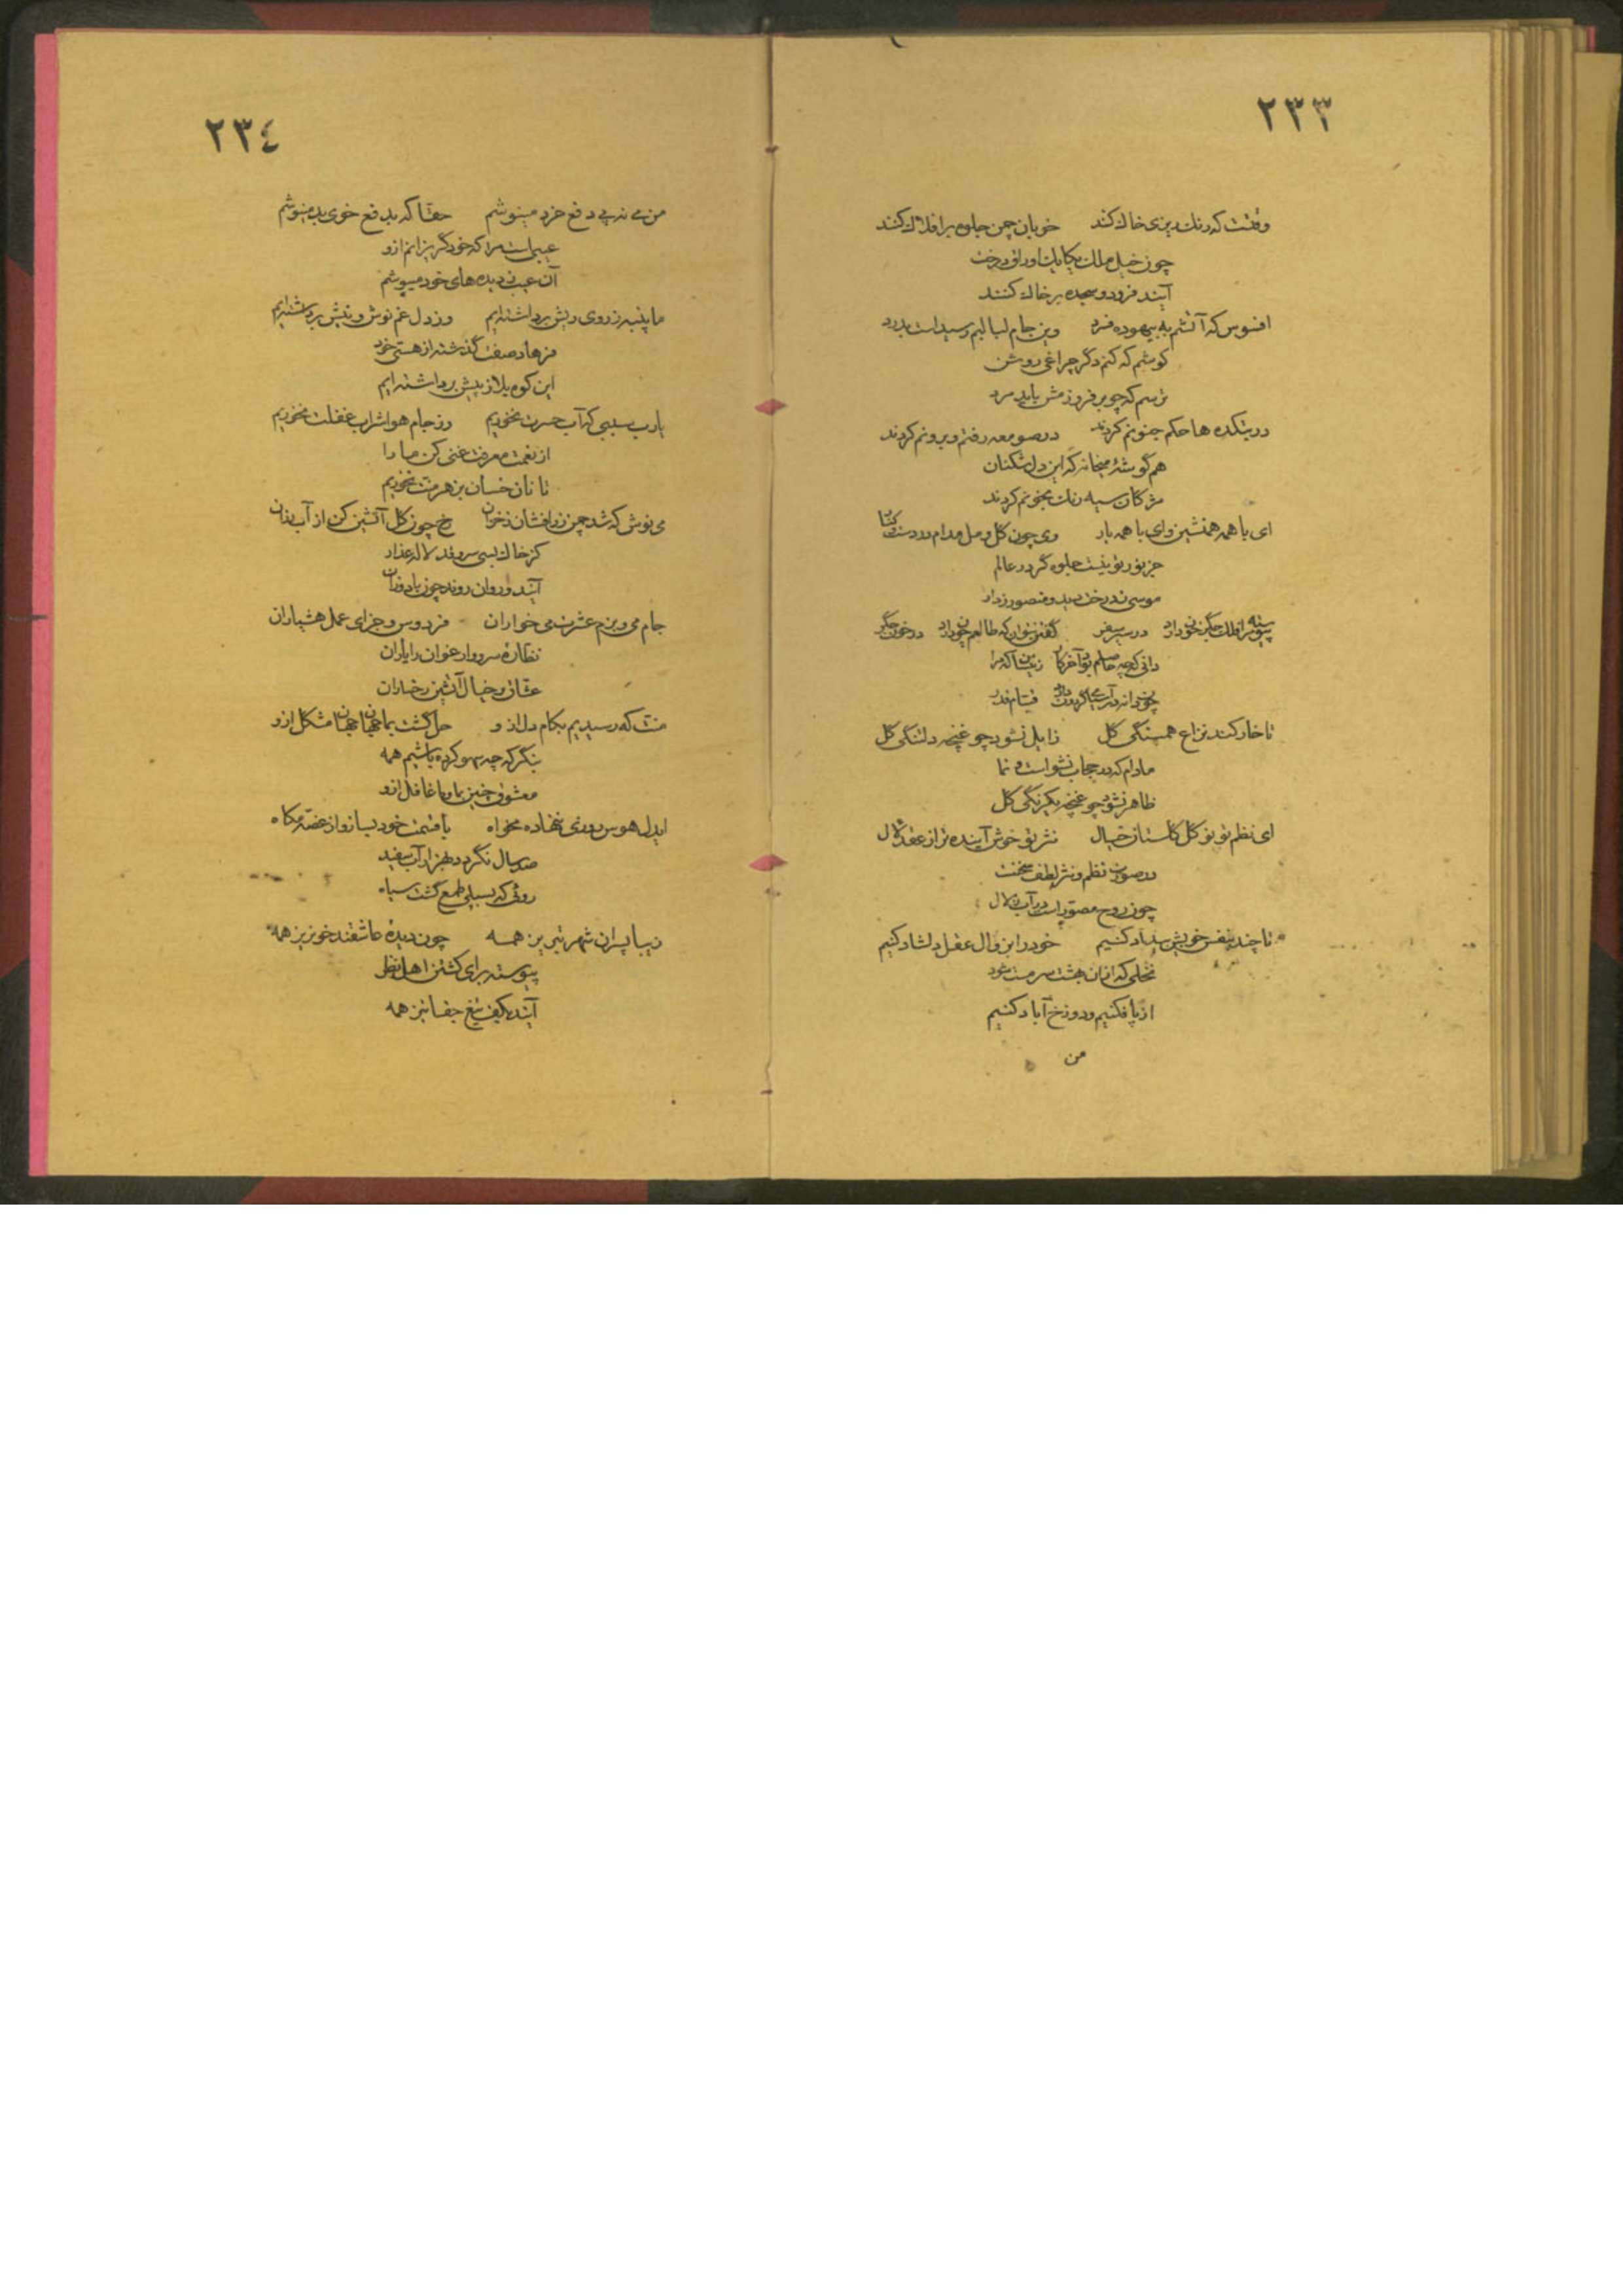 ٢٣٣
وقتست که رنگ ریزی خاک کند خوبان چمن جلوه بر افلاک کنند
چون خیل ملک یکایک اوراق درخت
آیند فرود و سجده بر خاک کنند
افسوس که آتشم به بیهوده فسرد وین جام لبالبم رسید است بدرد
کوشم که کنم دگر چراغی روشن
ترسم که چو بر فروزمش باید مرد
در بتکده ها حکم جنونم کردند در صومعه رفتم و برونم کردند
هم گوشهٔ میخانه که این دل شکنان
مژکان سیه رنک بخونم کردند
ای با همه همنشین و ای با همه یار وی چون کل و مل مدام در دست و کنار
جز نور تو نیست جلوه گر در عالم
موسی ز درخت دید و منصور ز دار
پیوسته مرا فلک جگر خون دارد در سیر سفر گفتن نتوان که طالعم چون دارد در خون جگر
دانی که چه حاصلم بود آخر کار زین آسا که مرا
چون دانه در آسیای گردون دارد
تا خار کند نزاع همسنگی کل زایل نشود چو غنچه دلتنگی کل
مادام که در حجاب نشو است و نما
ظاهر نشود چو غنچه یکرنگی کل
ای نظم تو نو کل کلستان خیال نثر تو خوش آینده تر از عقد لآل
در صورت نظم و نثر لطف سخنت
چون روح مصور است در آب زلال
تا چند بنفس خویش بیداد کنیم خود را بزوال عقل دلشاد کنیم
نخلی که از آن بهشت سرمست بود
از پا فکنیم و دوزخ آباد کنیم
من
٢٣٤
من می نه پی دفع خرد مینوشم حقا که بدفع خوی بد مینوشم
عیبی است مرا که خود گریزانم ازو
آن عیب ز دیده های خود میپوشم
ما پنبه ز روی ریش برداشته ایم وز دل غم نوش و نیش برداشته ایم
فرهاد صفت گذشته از هستی خود
این کوه بلا ز پیش برداشته ایم
یارب سببی که آب حسرت نخوریم وز جام هوا شراب غفلت نخوریم
از نعمت معرفت غنی کن ما را
تا نان خسان بزهر منت نخوریم
می نوش که شد چمن زر افشان ز خزان رخ چون کل آتشین کن از آب رزان
کز خاک بسی سرو قد لاله عذار
آیند و روان روند چون باد وزان
جام می و بزم عشرت می خواران فردوس و جزای عمل هشیاران
نظارهٔ سرو و ارغوان را یاران
عشاق و خیال آتشین رخساران
منت که رسیدیم بکام دل ازو حل گشت بما جهان جهان مشکل ازو
بنگر که چه سهو کرده باشیم همه
معشوق چنین با ما و ما غافل ازو
ایدل هوس روزی ننهاده مخواه با قسمت خود بساز و از غصه مکاه
صد سال نگردد بهزار آب سفید
روئی که بسیلی طمع گشت سیاه
زیبا پسران شهر تبریز همه چون دیدهٔ عاشقند خونریز همه
پیوسته برای کشتن اهل نظر
آیند بکف تیغ جفا تیز همه